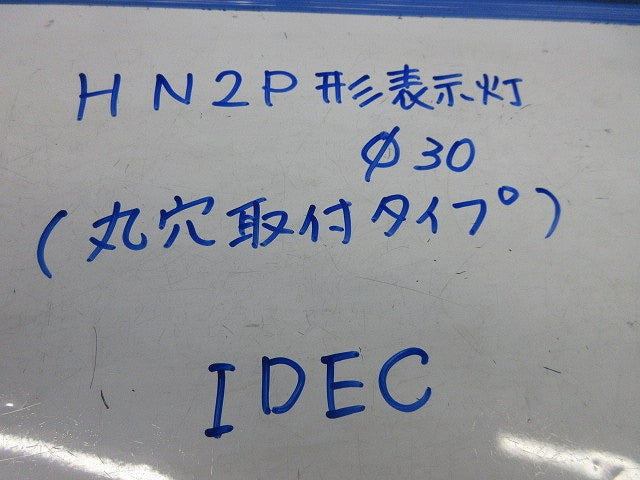 HN2P形表示灯
φ30
(丸穴取付タイプ)
IDEC